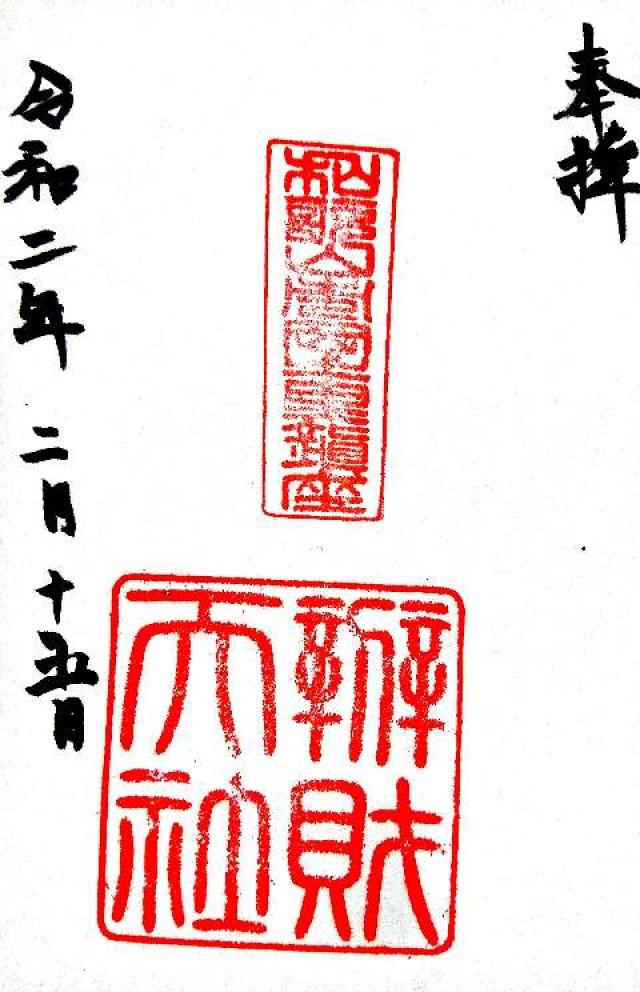 奉拝
辨財
天社
令和二年 二月十五日